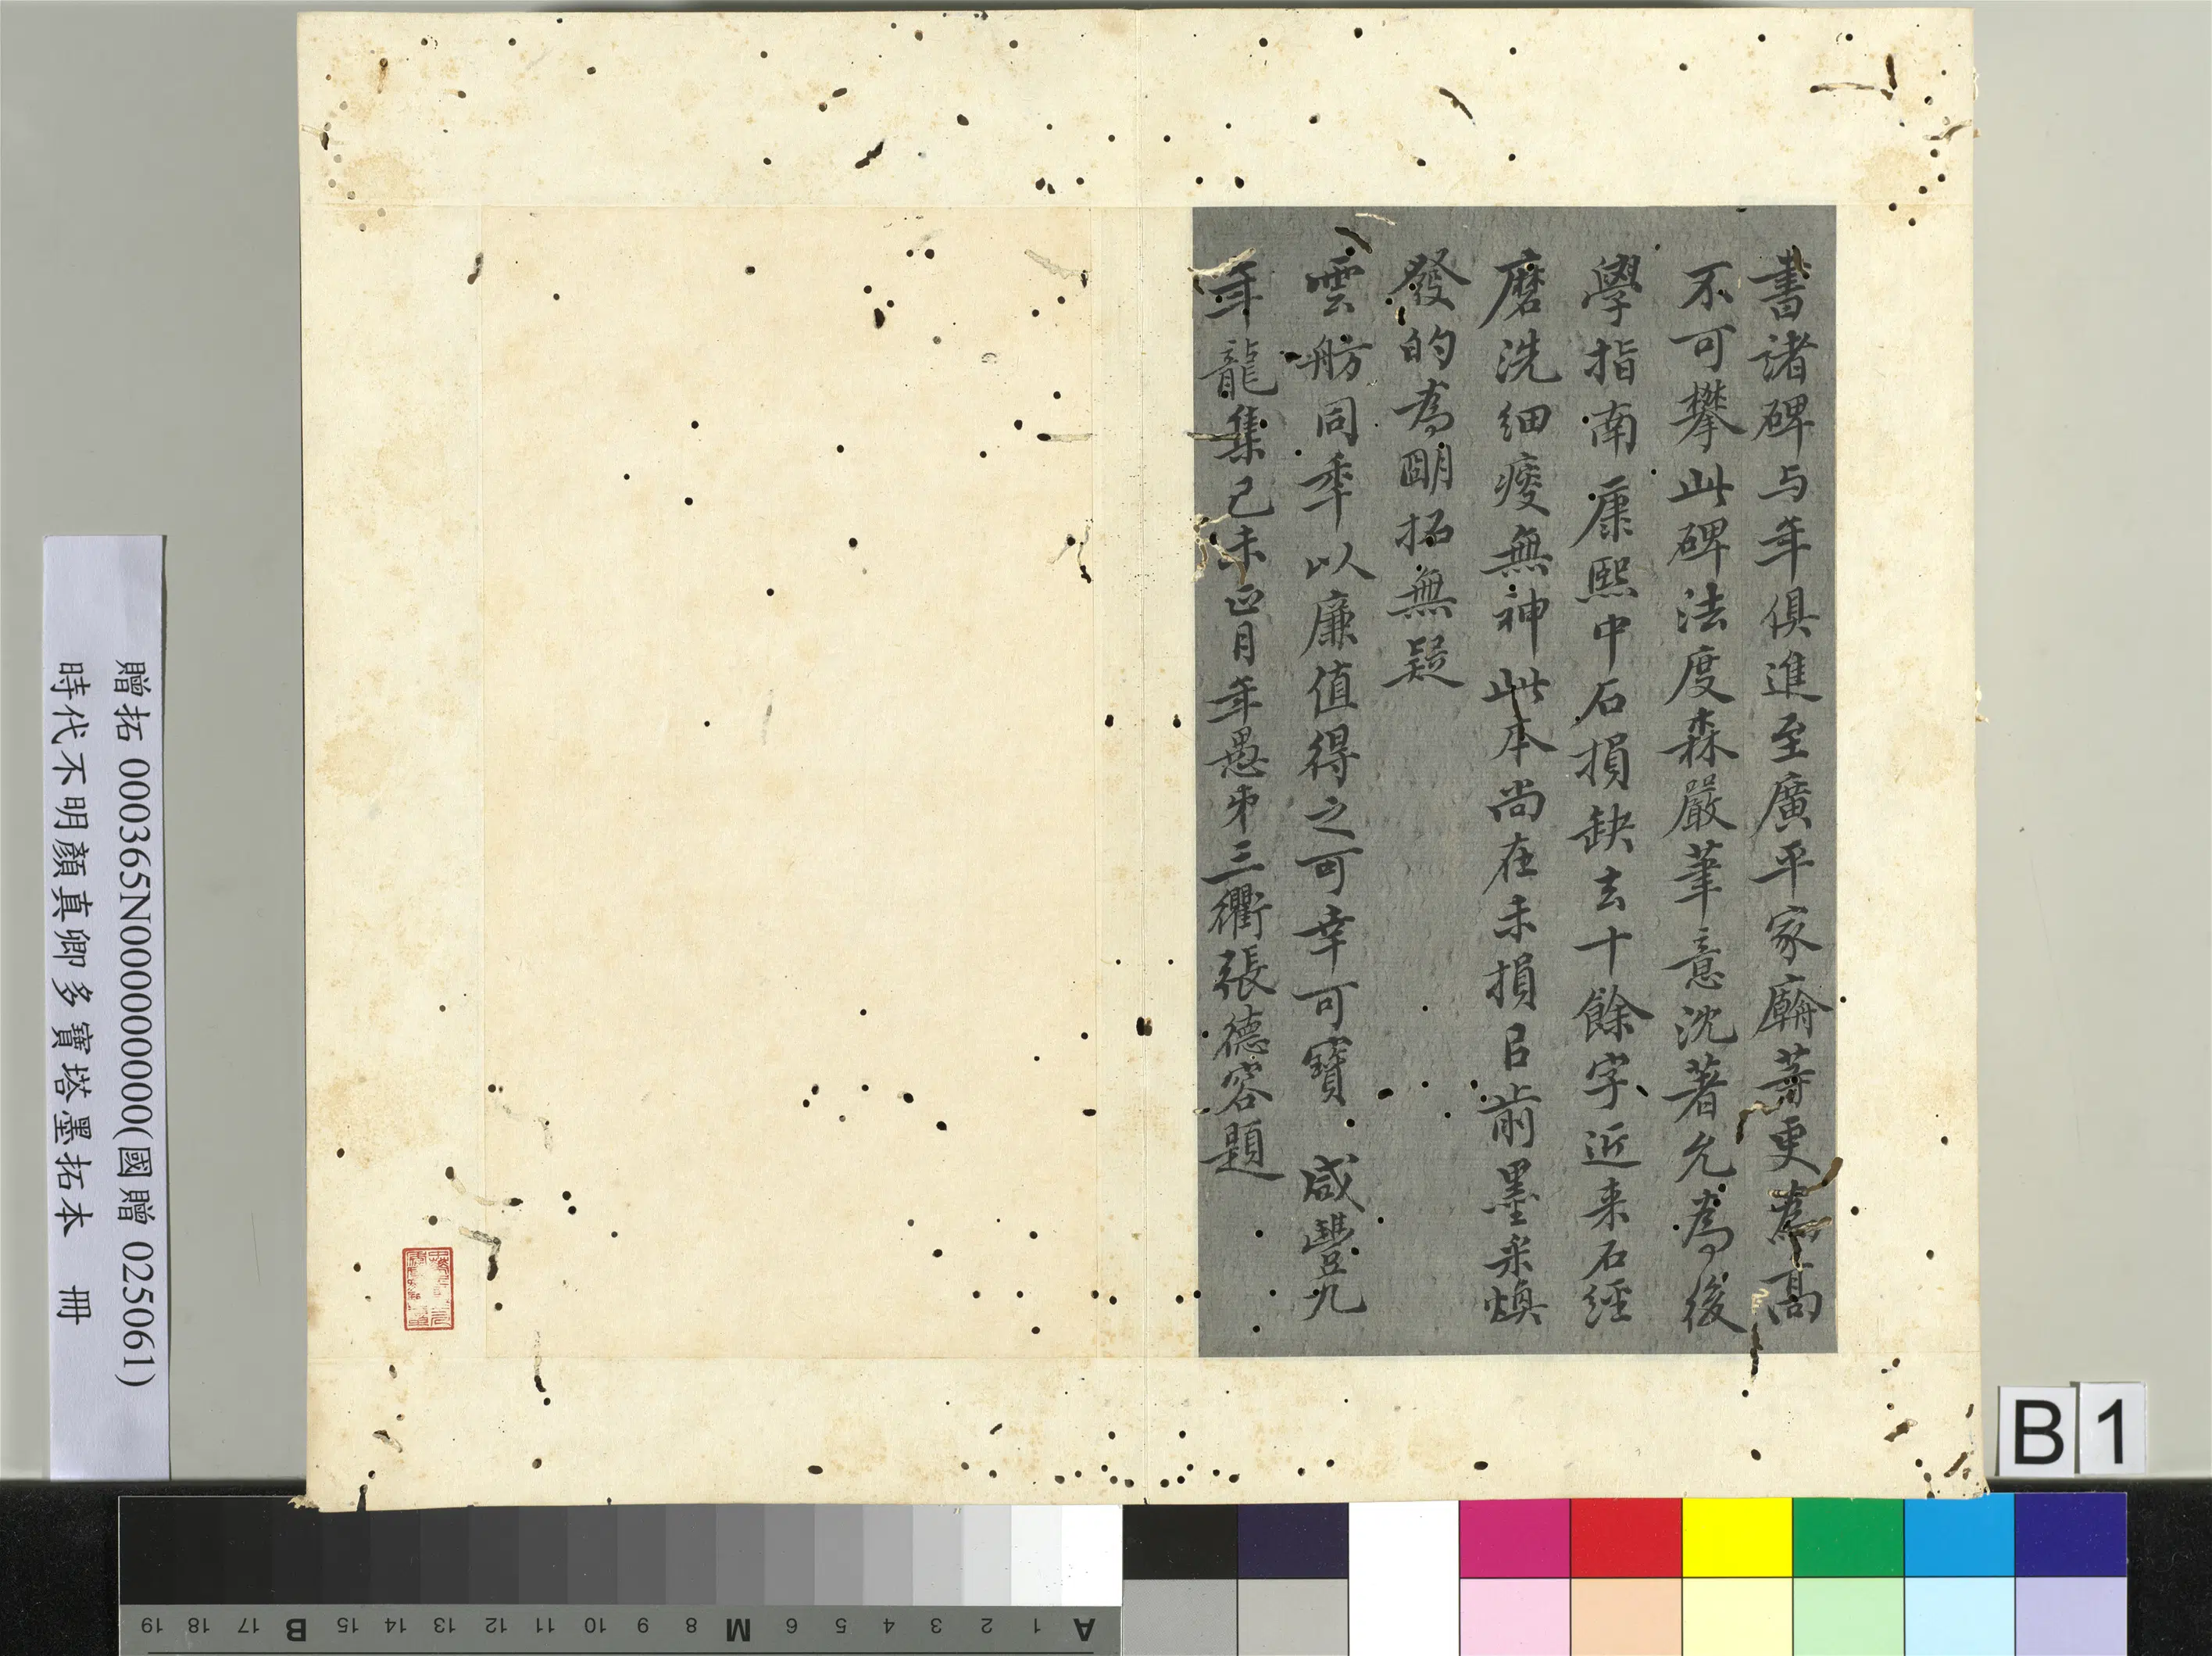 書諸碑与年俱進至廣平家廟等更為高
不可攀此碑法度森嚴筆意沈著允為後
學指南康熙中石損缺去十餘字近来石經
磨洗细瘦無神此本尚在未損㠯前墨采煥
發的為朙拓無疑
雲舫同年以廉值得之可幸可寶 咸豐九
年龍集己未正月年愚弟三衢張德容題
贈拓 000365N000000000(國贈 025061)
時代不明顏真卿多寶塔墨拓本 冊
B1
A 1 2 3 4 5 6 M 8 9 10 11 12 13 14 15 B 17 18 19